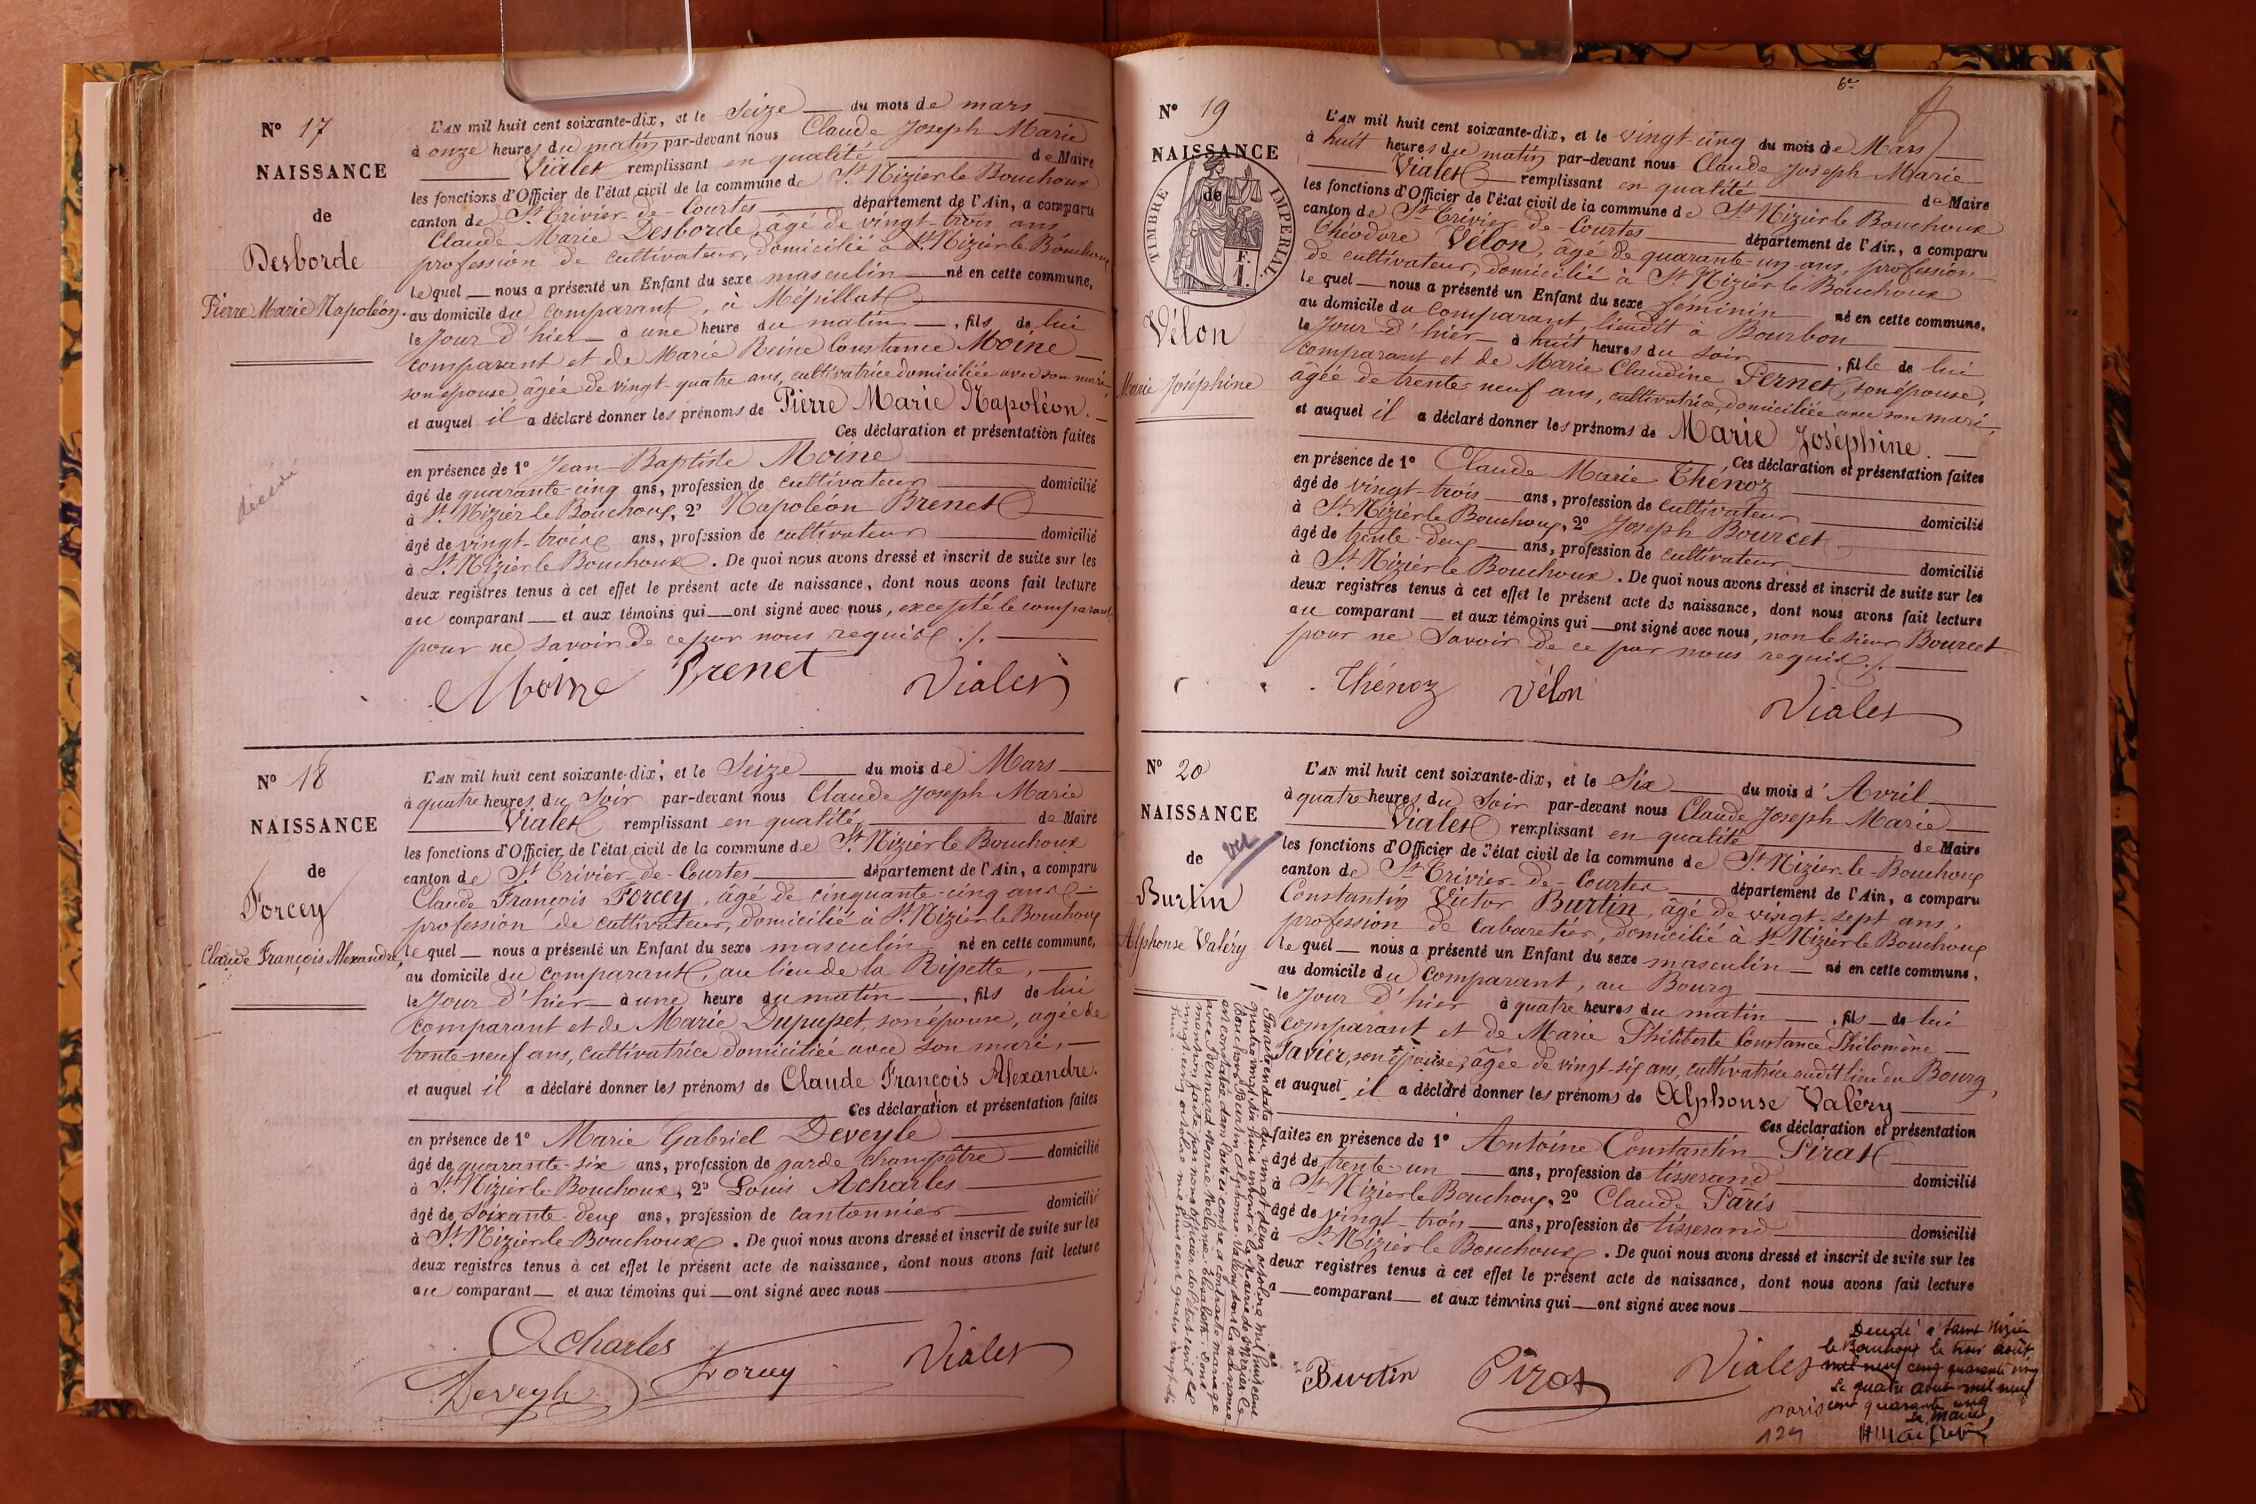 N° 17
NAISSANCE
de
Desborde
Pierre Marie Napoléon.
décédé
L'AN mil huit cent soixante-dix, et le Seize du mois de mars
à onze heures du matin par-devant nous Claude Joseph Marie
Vialet remplissant en qualité de Maire
les fonctions d'Officier de l'état civil de la commune de St Nizier le Bouchoux
canton de St Trivier-de-Courtes département de l'Ain, a comparu
Claude Marie Desborde, âgé de vingt-trois ans
profession de cultivateur, domicilié à St Nizier le Bouchoux
lequel nous a présenté un Enfant du sexe masculin né en cette commune,
au domicile du comparant, à Mépillat
le Jour d'hier à une heure du matin, fils de lui
comparant et de Marie Reine Constance Moine
son épouse, âgée de vingt-quatre ans, cultivatrice domiciliée avec son mari,
et auquel il a déclaré donner les prénoms de Pierre Marie Napoléon.
Ces déclaration et présentation faites
en présence de 1° Jean-Baptiste Moine
âgé de quarante-cinq ans, profession de cultivateur domicilié
à St Nizier le Bouchoux, 2° Napoléon Brenet
âgé de vingt-trois ans, profession de cultivateur domicilié
à St Nizier le Bouchoux. De quoi nous avons dressé et inscrit de suite sur les
deux registres tenus à cet effet le présent acte de naissance, dont nous avons fait lecture
au comparant et aux témoins qui ont signé avec nous, excepté le comparant
pour ne savoir de ce par nous requis ./.
Moine Brenet Vialet
N° 18
NAISSANCE
de
Forcey
Claude François Alexandre,
L'AN mil huit cent soixante-dix, et le Seize du mois de Mars
à quatre heures du Soir par-devant nous Claude Joseph Marie
Vialet remplissant en qualité de Maire
les fonctions d'Officier de l'état civil de la commune de St Nizier le Bouchoux
canton de St Trivier-de-Courtes département de l'Ain, a comparu
Claude François Forcey, âgé de cinquante-cinq ans
profession de cultivateur, domicilié à St Nizier le Bouchoux
lequel nous a présenté un Enfant du sexe masculin né en cette commune,
au domicile du comparant, au lieu de la Ripette,
le Jour d'hier à une heure du matin, fils de lui
comparant et de Marie Dupupet, son épouse, agée de
trente-neuf ans, cultivatrice domiciliée avec son mari,
et auquel il a déclaré donner les prénoms de Claude François Alexandre.
Ces déclaration et présentation faites
en présence de 1° Marie Gabriel Deveyle
âgé de quarante-six ans, profession de garde champêtre domicilié
à St Nizier le Bouchoux, 2° Louis Acharles
âgé de soixante-deux ans, profession de cantonnier domicilié
à St Nizier le Bouchoux. De quoi nous avons dressé et inscrit de suite sur les
deux registres tenus à cet effet le présent acte de naissance, dont nous avons fait lecture
au comparant et aux témoins qui ont signé avec nous
Acharles
Deveyle Forcey Vialet
6e
N° 19
NAISSANCE
de
TIMBRE IMPERIAL.
F.
1.
Vélon
Marie Joséphine
L'AN mil huit cent soixante-dix, et le vingt-cinq du mois de Mars
à huit heures du matin par-devant nous Claude Joseph Marie
Vialet remplissant en qualité de Maire
les fonctions d'Officier de l'état civil de la commune de St Nizier le Bouchoux
canton de St Trivier-de-Courtes département de l'Ain, a comparu
Théodore Vélon, âgé de quarante-un ans, profession
de cultivateur, domicilié à St Nizier le Bouchoux
lequel nous a présenté un Enfant du sexe féminin né en cette commune,
au domicile du comparant, lieudit à Bourbon
le Jour d'hier à huit heures du soir, fille de lui
comparant et de Marie Claudine Pernet, son épouse,
âgée de trente-neuf ans, cultivatrice, domiciliée avec son mari,
et auquel il a déclaré donner les prénoms de Marie Joséphine.
Ces déclaration et présentation faites
en présence de 1° Claude Marie Thénoz
âgé de vingt-trois ans, profession de cultivateur domicilié
à St Nizier le Bouchoux, 2° Joseph Bourcet
âgé de trente-deux ans, profession de cultivateur domicilié
à St Nizier le Bouchoux. De quoi nous avons dressé et inscrit de suite sur les
deux registres tenus à cet effet le présent acte de naissance, dont nous avons fait lecture
au comparant et aux témoins qui ont signé avec nous, non le sieur Bourcet
pour ne Savoir de ce par nous requis ./.
Thénoz Vélon Vialet
N° 20
NAISSANCE
de
Burtin
Alphonse Valéry
L'AN mil huit cent soixante-dix, et le Six du mois d'Avril
à quatre heures du Soir par-devant nous Claude Joseph Marie
Vialet remplissant en qualité de Maire
les fonctions d'Officier de l'état civil de la commune de St Nizier-le-Bouchoux
canton de St Trivier-de-Courtes département de l'Ain, a comparu
Constantin Victor Burtin, âgé de vingt-sept ans,
profession de cabaretier, domicilié à St Nizier le Bouchoux
lequel nous a présenté un Enfant du sexe masculin né en cette commune,
au domicile du comparant, au Bourg
le Jour d'hier à quatre heures du matin, fils de lui
comparant et de Marie Philiberte Constance Philomène
Javier, son épouse, âgée de vingt-six ans, cultivatrice audit lieu du Bourg,
et auquel il a déclaré donner les prénoms de Alphonse Valéry
Ces déclaration et présentation
faites en présence de 1° Antoine Constantin Pirat
âgé de trente-un ans, profession de tisserand domicilié
à St Nizier le Bouchoux, 2° Claude Paris
âgé de vingt-trois ans, profession de tisserand domicilié
à St Nizier le Bouchoux. De quoi nous avons dressé et inscrit de suite sur les
deux registres tenus à cet effet le présent acte de naissance, dont nous avons fait lecture
a comparant et aux témoins qui ont signé avec nous
Par acte en date du vingt deux octobre mil huit cent
quatre vingt dix huit à la mairie de St Nizier le
Bouchoux, Burtin Alphonse Valéry dont la naissance
est constatée dans l'acte ci contre a contracté mariage
avec Bernard Marie
mention faite par nous officier de l'état civil le
vingt cinq octobre mil huit cent quatre vingt dix
huit
Burtin Pirat Vialet
Paris
Décédé à Saint Nizier
le Bouchoux le trois août
mil neuf cent quarante cinq
Le quatre août mil neuf
cent quarante cinq
Le Maire,
129